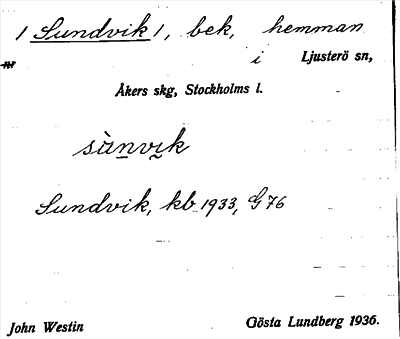 / Sundvik /, bek, hemman
nr i Ljusterö sn,
Åkers skg, Stockholms l.
sùnvik
Sundvik, kb 1933, G 76
John Westin Gösta Lundberg 1936.